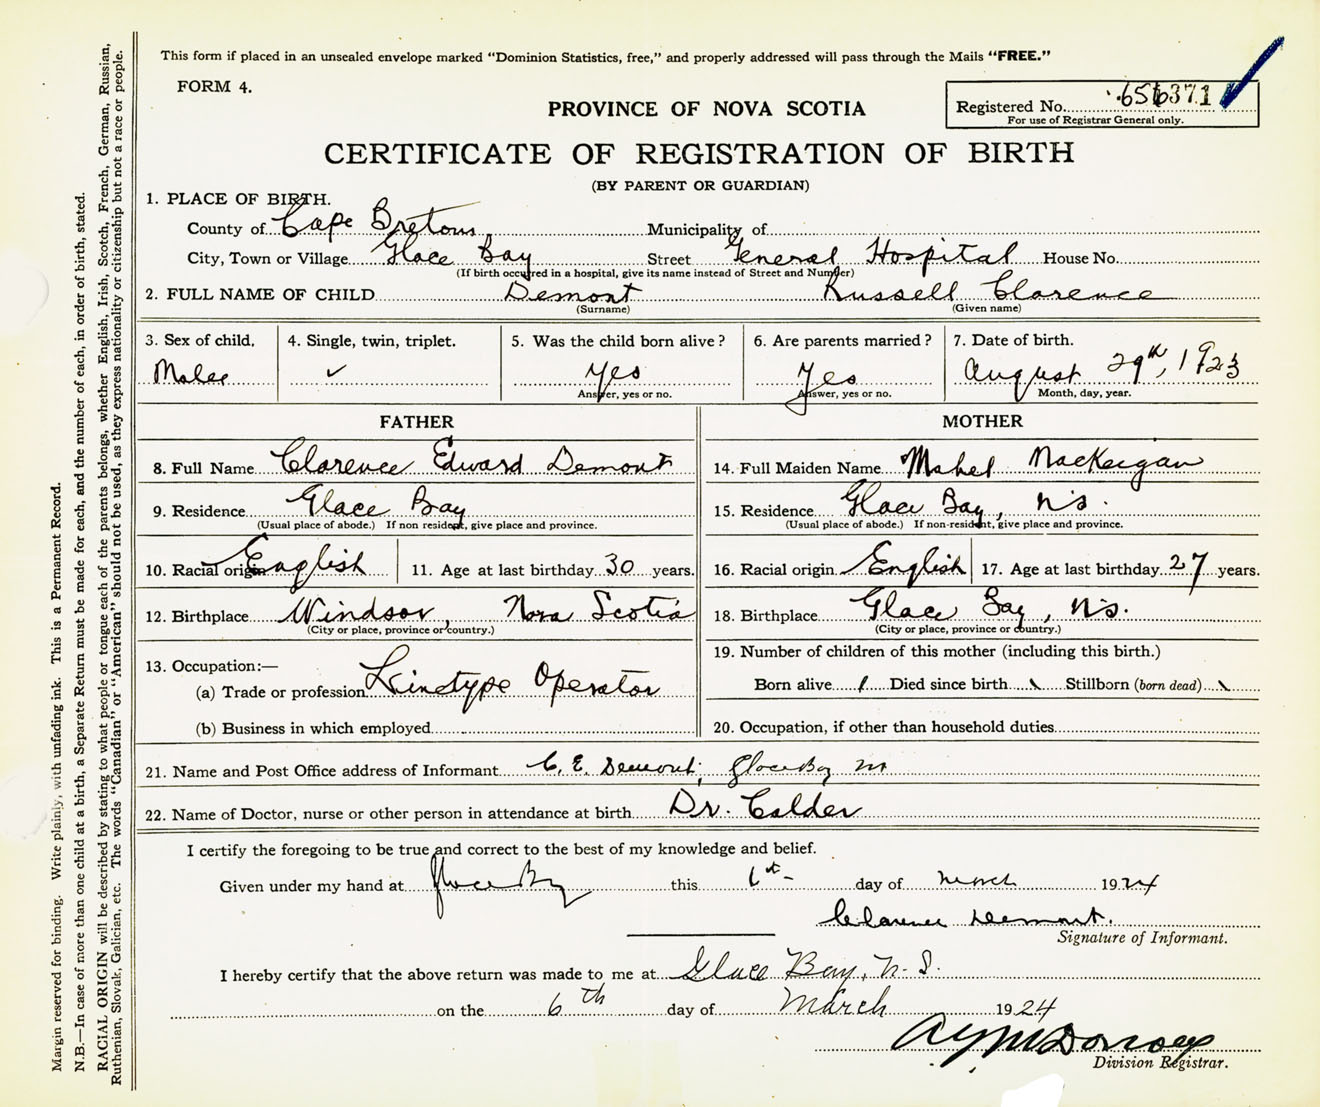 This form if placed in an unsealed envelope marked "Dominion Statistics, free," and properly addressed will pass through the Mails "FREE."
FORM 4.
Registered No. 656371
For use of Registrar General only.
PROVINCE OF NOVA SCOTIA
CERTIFICATE OF REGISTRATION OF BIRTH
(BY PARENT OR GUARDIAN)
1. PLACE OF BIRTH.
County of Cape Breton Municipality of
City, Town or Village Glace Bay Street General Hospital House No.
(If birth occurred in a hospital, give its name instead of Street and Number)
2. FULL NAME OF CHILD Demont Russell Clarence
(Surname) (Given name)
3. Sex of child. 4. Single, twin, triplet. 5. Was the child born alive? 6. Are parents married? 7. Date of birth.
Male ✓ Yes Yes August 29th, 1923
Answer, yes or no. Answer, yes or no. Month, day, year.
FATHER MOTHER
8. Full Name Clarence Edward Demont 14. Full Maiden Name Mabel MacKeigan
9. Residence Glace Bay 15. Residence Glace Bay, N.S.
(Usual place of abode.) If non resident, give place and province. (Usual place of abode.) If non-resident, give place and province.
10. Racial origin English 11. Age at last birthday 30 years. 16. Racial origin English 17. Age at last birthday 27 years.
12. Birthplace Windsor, Nova Scotia 18. Birthplace Glace Bay, N.S.
(City or place, province or country.) (City or place, province or country.)
13. Occupation:— 19. Number of children of this mother (including this birth.)
(a) Trade or profession Linetype Operator Born alive 1 Died since birth \ Stillborn (born dead) \
(b) Business in which employed 20. Occupation, if other than household duties
21. Name and Post Office address of Informant C. E. Demont, Glace Bay
22. Name of Doctor, nurse or other person in attendance at birth Dr. Calder
I certify the foregoing to be true and correct to the best of my knowledge and belief.
Given under my hand at Glace Bay this 6th day of March 1924
Clarence Demont.
Signature of Informant.
I hereby certify that the above return was made to me at Glace Bay, N.S.
on the 6th day of March 1924
Division Registrar.
Margin reserved for binding. Write plainly, with unfading ink. This is a Permanent Record.
N.B.—In case of more than one child at a birth, a Separate Return must be made for each, and the number of each, in order of birth, stated.
RACIAL ORIGIN will be described by stating to what people or tongue each of the parents belongs, whether English, Irish, Scotch, French, German, Russian,
Ruthenian, Slovak, Galician, etc. The words "Canadian" or "American" should not be used, as they express nationality or citizenship but not a race or people.